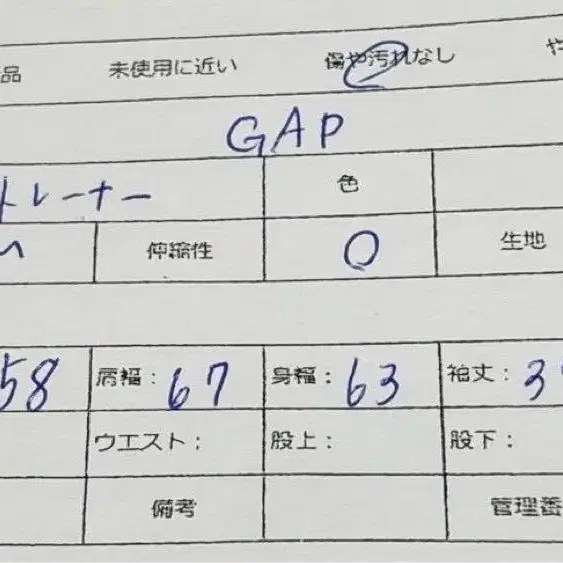 品 未使用に近い 傷や汚れなし や
GAP
トレーナー 色
伸縮性 0 生地
58 肩幅: 67 身幅: 63 袖丈: 3
ウエスト: 股上: 股下:
備考 管理番